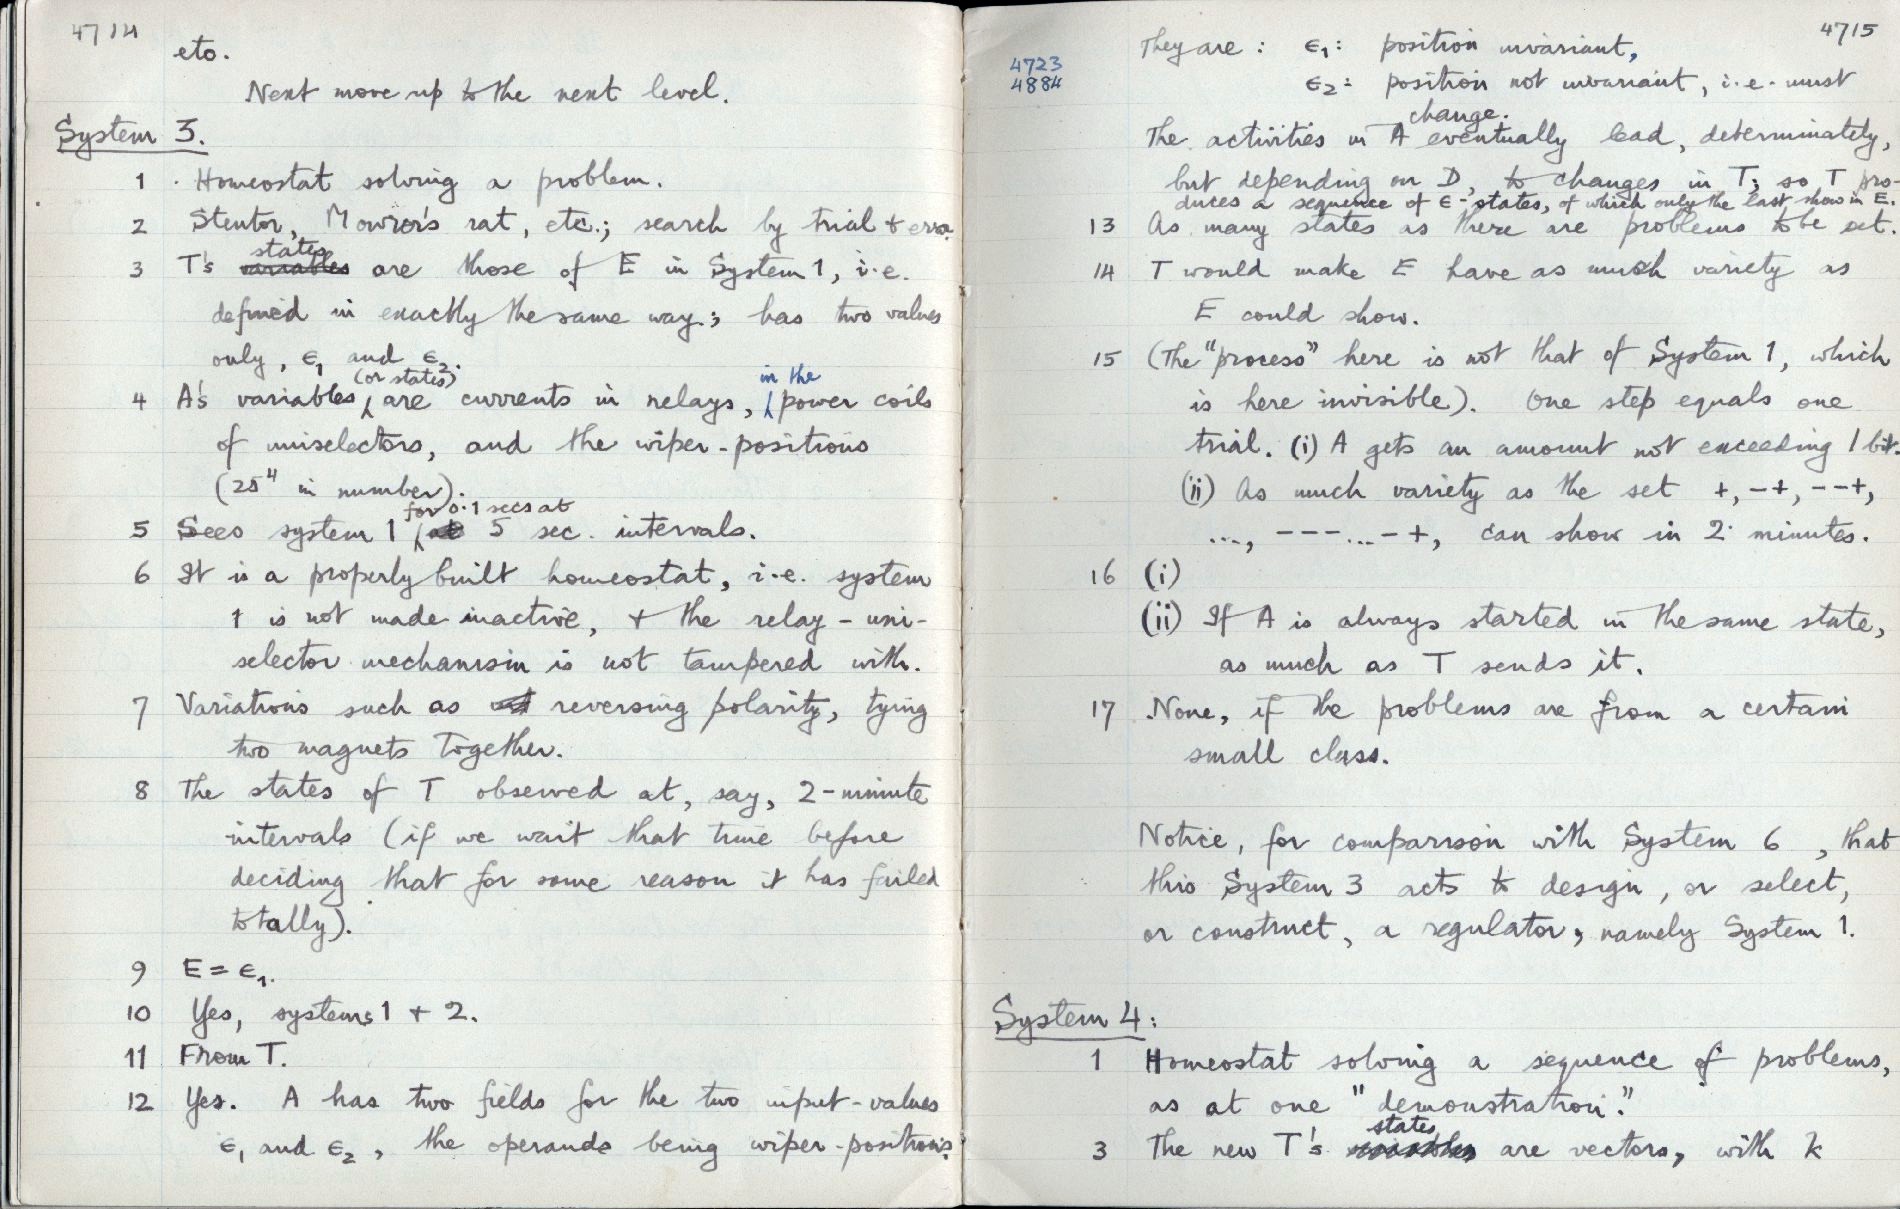 4714
etc.
Next move up to the next level.
System 3.
1 Homeostat solving a problem.
2 Stentor, Mowrer's rat, etc.; search by trial + error
states
3 T's variables are those of E in System 1, i.e.
defined in exactly the same way; has two values
only, ϵ1 and ϵ2.
(or states)
in the
4 A's variables, are currents in relays, power coils
of uniselectors, and the wiper-positions
(25⁴ in number).
for 0.1 secs at
5 Sees system 1 at 5 sec. intervals.
6 It is a properly built homeostat, i.e. system
1 is not made inactive, + the relay-uni-
selector mechanism is not tampered with.
7 Variations such as reversing polarity, tying
two magnets together.
8 The states of T observed at, say, 2-minute
intervals (if we wait that time before
deciding that for some reason it has failed
totally).
9 E = ϵ1.
10 Yes, systems 1 + 2.
11 From T.
12 Yes. A has two fields for the two input-values
ϵ1 and ϵ2, the operands being wiper-positions.
4715
4723
4884
They are: ϵ1: position invariant,
ϵ2: position not invariant, i.e. must
change.
The activities in A eventually lead, determinately,
but depending on D, to changes in T; so T pro-
duces a sequence of ϵ-states, of which only the last show in E.
13 As many states as there are problems to be set.
14 T would make E have as much variety as
E could show.
15 (The "process" here is not that of System 1, which
is here invisible). One step equals one
trial. (i) A gets an amount not exceeding 1 bit.
(ii) As much variety as the set +, -+, --+,
..., ---...-+, can show in 2 minutes.
16 (i)
(ii) If A is always started in the same state,
as much as T sends it.
17 None, if the problems are from a certain
small class.
Notice, for comparison with System 6, that
this System 3 acts to design, or select,
or construct, a regulator, namely System 1.
System 4:
1 Homeostat solving a sequence of problems,
as at one "demonstration."
states
3 The new T's variables are vectors, with k